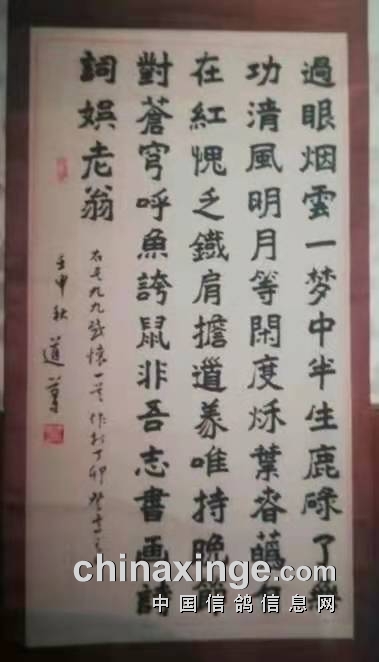 過眼烟雲一梦中半生鹿碌了無
功清風明月等閑度秌葉春
在紅愧乏鐵肩擔道義唯持晚
對蒼穹呼魚誇鼠非吾志書画詩
詞娛老翁
九九感懷一首作於丁卯
壬申秋道
chinaxinge.com
中国信鸽信息网